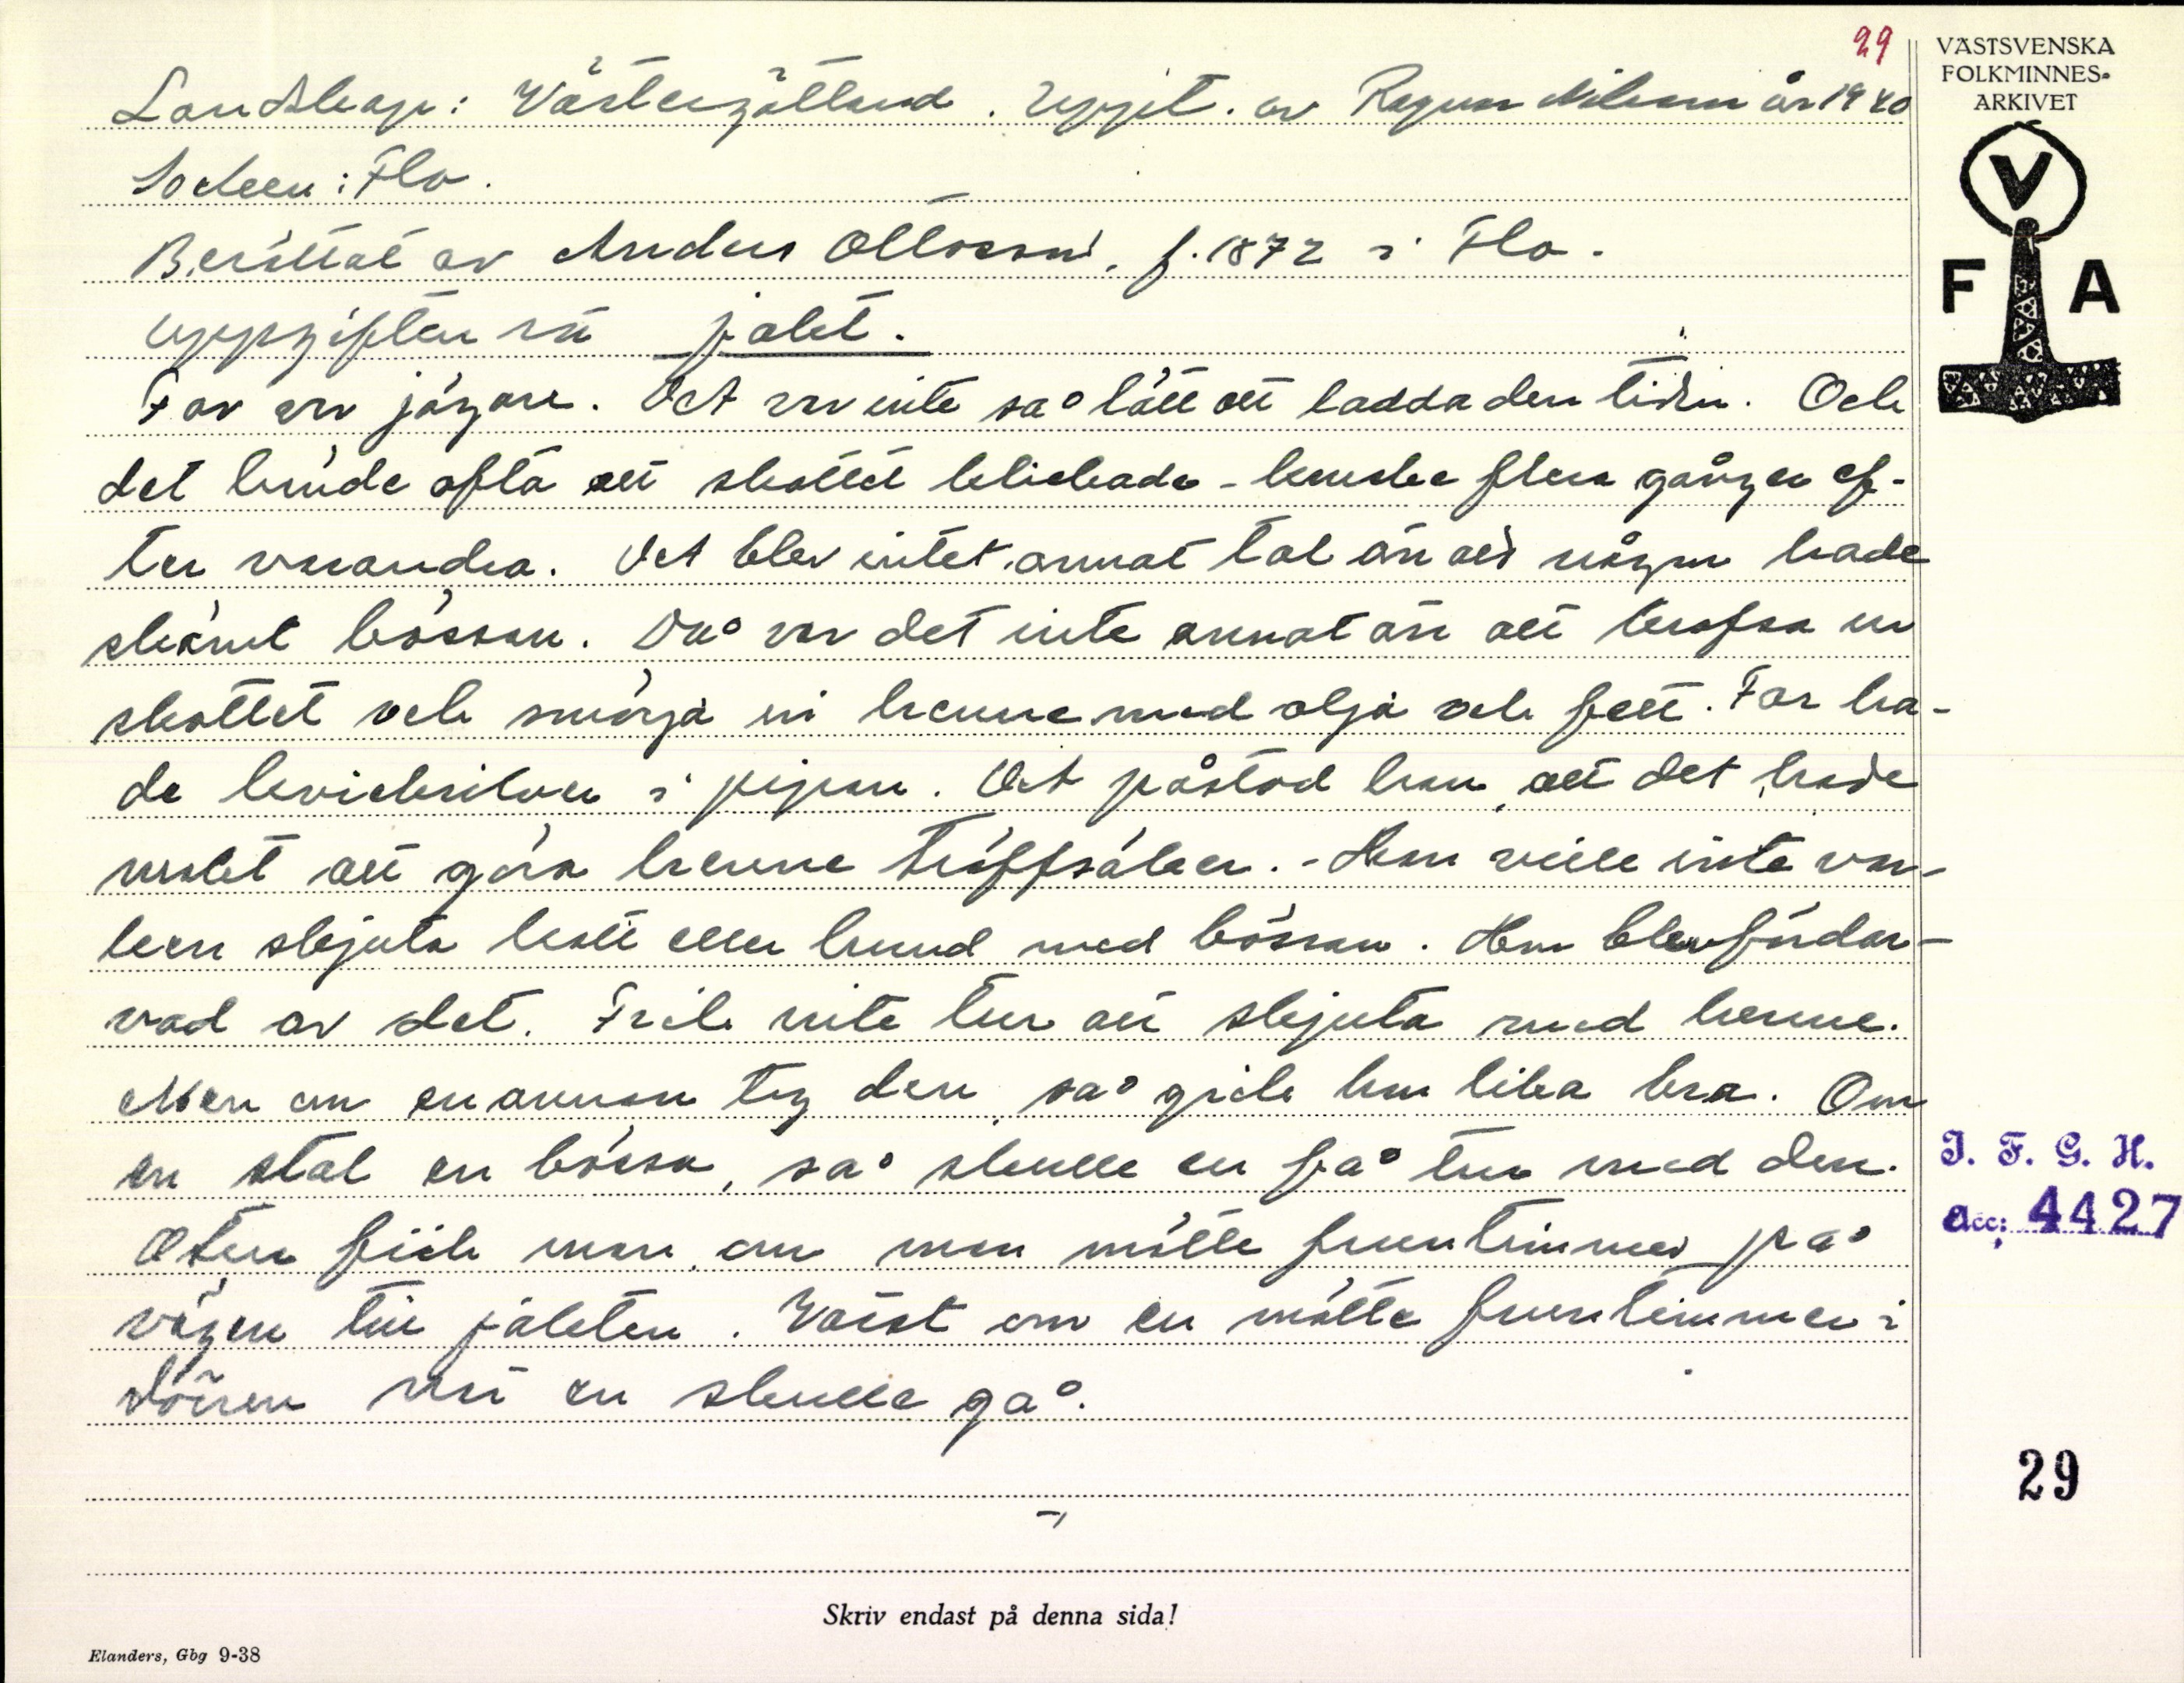 29
VÄSTSVENSKA
FOLKMINNES-
ARKIVET
V
F A
Landskap: Västergötland. Uppt. av Ragnar Nilsson år 1940
Socken: Flo.
Berättat av Anders Ottosson, f. 1872 i Flo.
Uppgiften rör jakt.
Far var jägare. Det var inte så lätt att ladda den tiden. Och
det hände ofta att skottet klickade - kanske flera gånger ef-
ter varandra. Det blev intet annat tal än att någon hade
skämt bössan. Då var det inte annat än att krafsa ur
skottet och smörja in henne med olja och fett. Far ha-
de kvicksilver i pipan. Det påstod han, att det hade
verkat att göra henne träffsäker. - Han ville inte var-
ken skjuta katt eller hund med bössan. Hon blev fördär-
vad av det. Fick inte tur att skjuta med henne.
Men om en annan tog den, så gick hon lika bra. Om
en stal en bössa, så skulle en få tur med den.
Otur fick man, om man mötte fruntimmer på
vägen till jakten. Värst om en mötte fruntimmer i
dörren när en skulle gå.
I. F. G. H.
Acc: 4427
29
Skriv endast på denna sida!
Elanders, Gbg 9-38